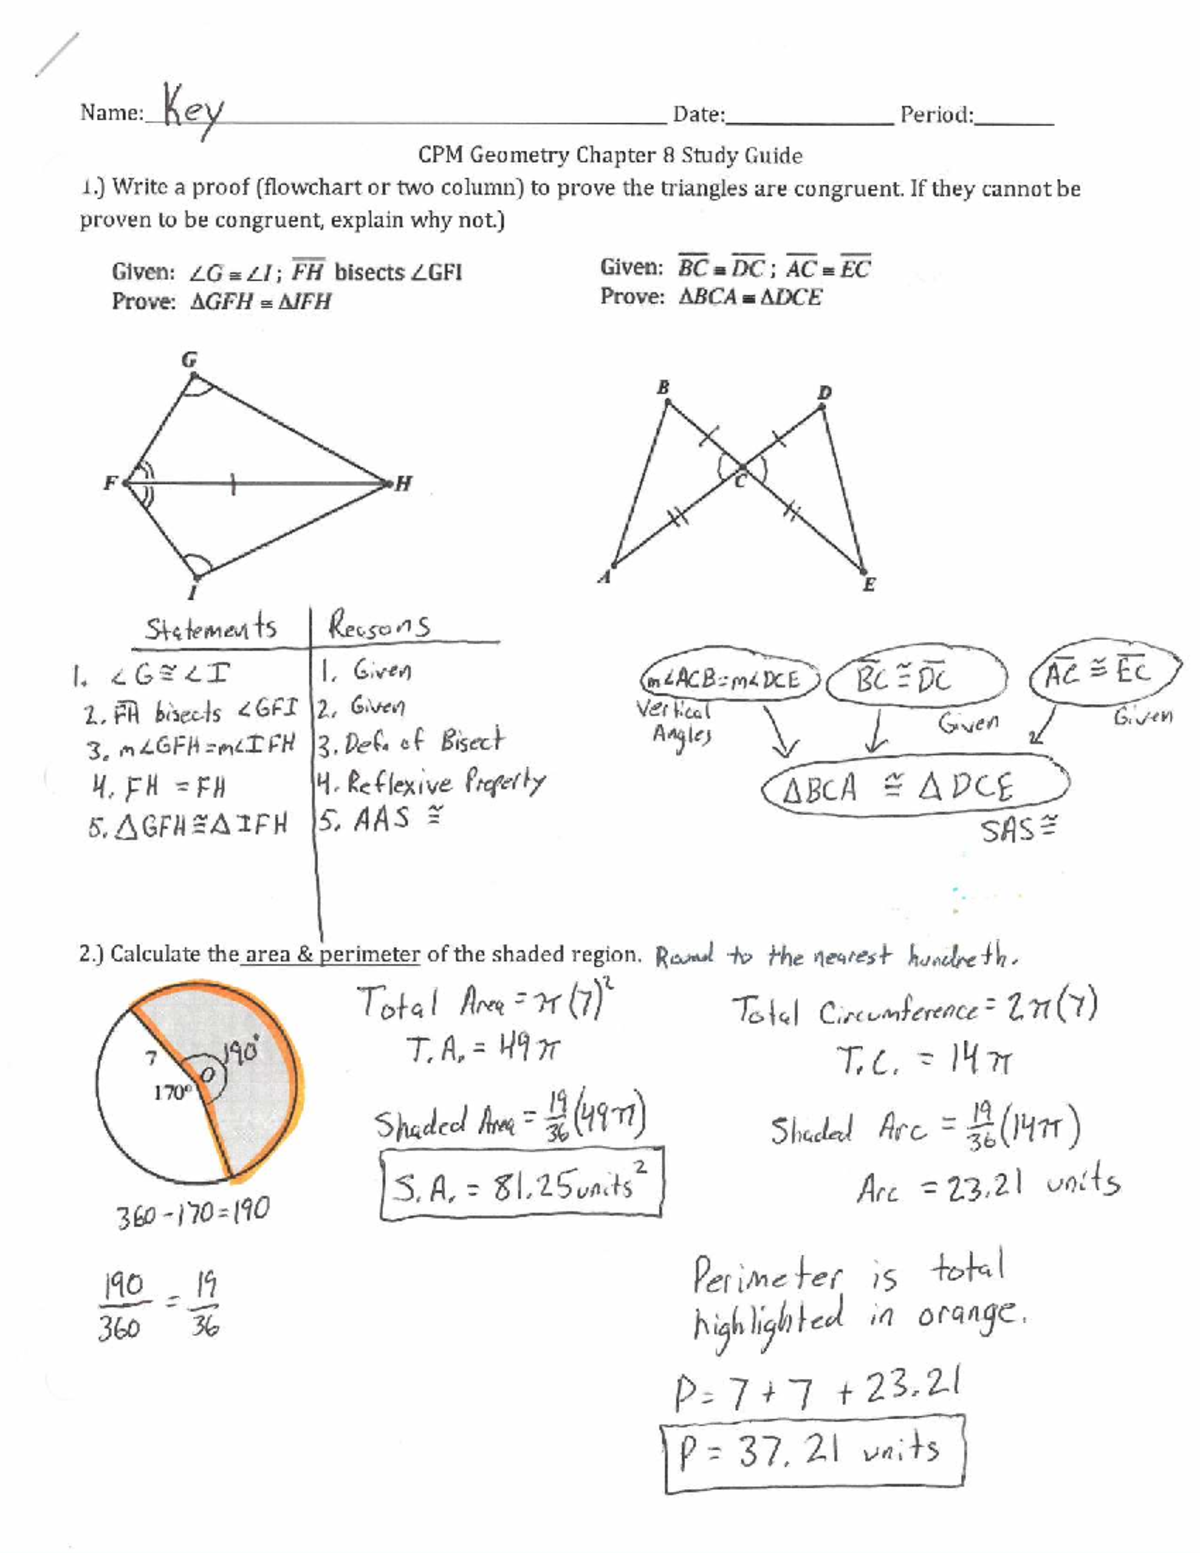 Name: Key Date: Period:
CPM Geometry Chapter 8 Study Guide
1.) Write a proof (flowchart or two column) to prove the triangles are congruent. If they cannot be
proven to be congruent, explain why not.)
Given: ∠G ≅ ∠I ; F̅H̅ bisects ∠GFI
Prove: ΔGFH ≅ ΔIFH
Given: B̅C̅ ≅ D̅C̅ ; A̅C̅ ≅ E̅C̅
Prove: ΔBCA ≅ ΔDCE
G
F
H
I
B
D
C
A
E
Statements Reasons
1. ∠G ≅ ∠I 1. Given
2. F̅H̅ bisects ∠GFI 2. Given
3. m∠GFH = m∠IFH 3. Def. of Bisect
4. FH = FH 4. Reflexive Property
5. ΔGFH ≅ ΔIFH 5. AAS ≅
m∠ACB = m∠DCE
Vertical
Angles
B̅C̅ ≅ D̅C̅
Given
A̅C̅ ≅ E̅C̅
Given
ΔBCA ≅ ΔDCE
SAS ≅
2.) Calculate the area & perimeter of the shaded region. Round to the nearest hundreth.
7
190°
170°
O
360 - 170 = 190
190/360 = 19/36
Total Area = π(7)²
T.A. = 49π
Shaded Area = 19/36 (49π)
S.A. = 81.25 units²
Total Circumference = 2π(7)
T.C. = 14π
Shaded Arc = 19/36 (14π)
Arc = 23.21 units
Perimeter is total
highlighted in orange.
P = 7 + 7 + 23.21
P = 37.21 units